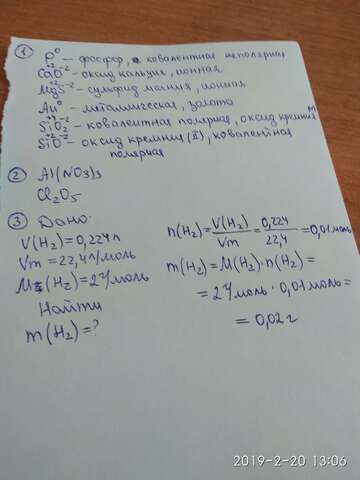 ① P⁰ – фосфор, ковалентная неполярная
Ca⁺²O⁻² – оксид кальция, ионная
Mg⁺²S⁻² – сульфид магния, ионная
Au⁰ – металлическая, золото
SiO₂ – ковалентная полярная, оксид кремния
Si⁺²O⁻² – оксид кремния (II), ковалентная
полярная
② Al(NO₃)₃
Cl₂O₅
③ Дано:
V(H₂)=0,224л
Vm=22,4л/моль
M(H₂)=2г/моль
Найти
m(H₂)=?
n(H₂)=V(H₂)/Vm=0,224/22,4=0,01моль
m(H₂)=M(H₂)·n(H₂)=
=2г/моль·0,01моль=
=0,02г
2019-2-20 13:06